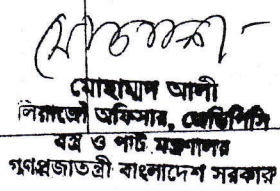 মোহাম্মদ আলী
লিয়াজোঁ অফিসার, জেডিপিসি
বস্ত্র ও পাট মন্ত্রণালয়
গণপ্রজাতন্ত্রী বাংলাদেশ সরকার